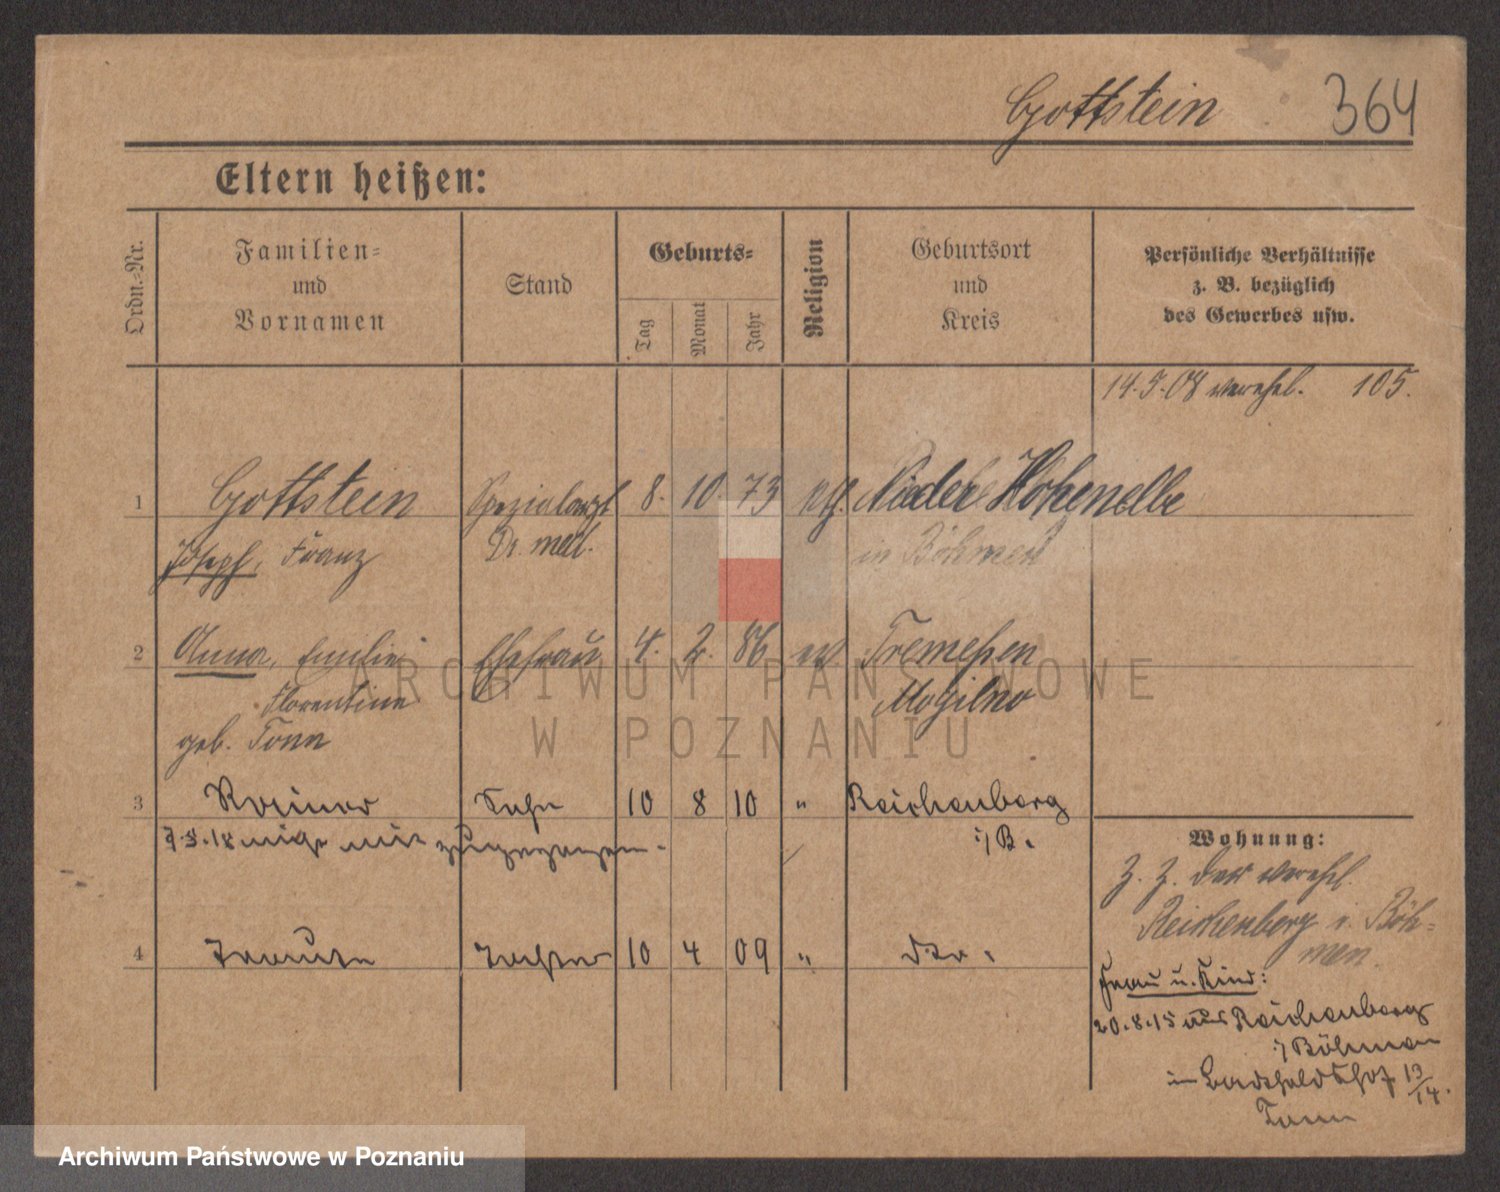 Gottstein 364
Eltern heißen:
Ordn.-Nr.
Familien-
und
Vornamen
Stand
Geburts-
Tag
Monat
Jahr
Religion
Geburtsort
und
Kreis
Persönliche Verhältnisse
z. B. bezüglich
des Gewerbes usw.
14.5.08 verehl. 105.
1 Gottstein Spezialarzt 8. 10 73 kth. Nieder Hohenelbe
Joseph, Franz Dr. med. in Böhmen
2 Anna, Emilie Ehefrau 4. 2. 86 ev. Tremeßen
Florentine Mogilno
geb. Tonn
3 Reiner Sohn 10 8 10 " Reichenberg
18 nicht mit zugegangen. i/B.
4 Traute Tochter 10 4 09 " dto.
Wohnung:
z. Z. der verehl.
Reichenberg i. Böh-
men.
Frau u. Kind:
20.8.15 aus Reichenberg
i/Böhmen
in 13/14.
Tonn
ARCHIWUM PAŃSTWOWE
W POZNANIU
Archiwum Państwowe w Poznaniu